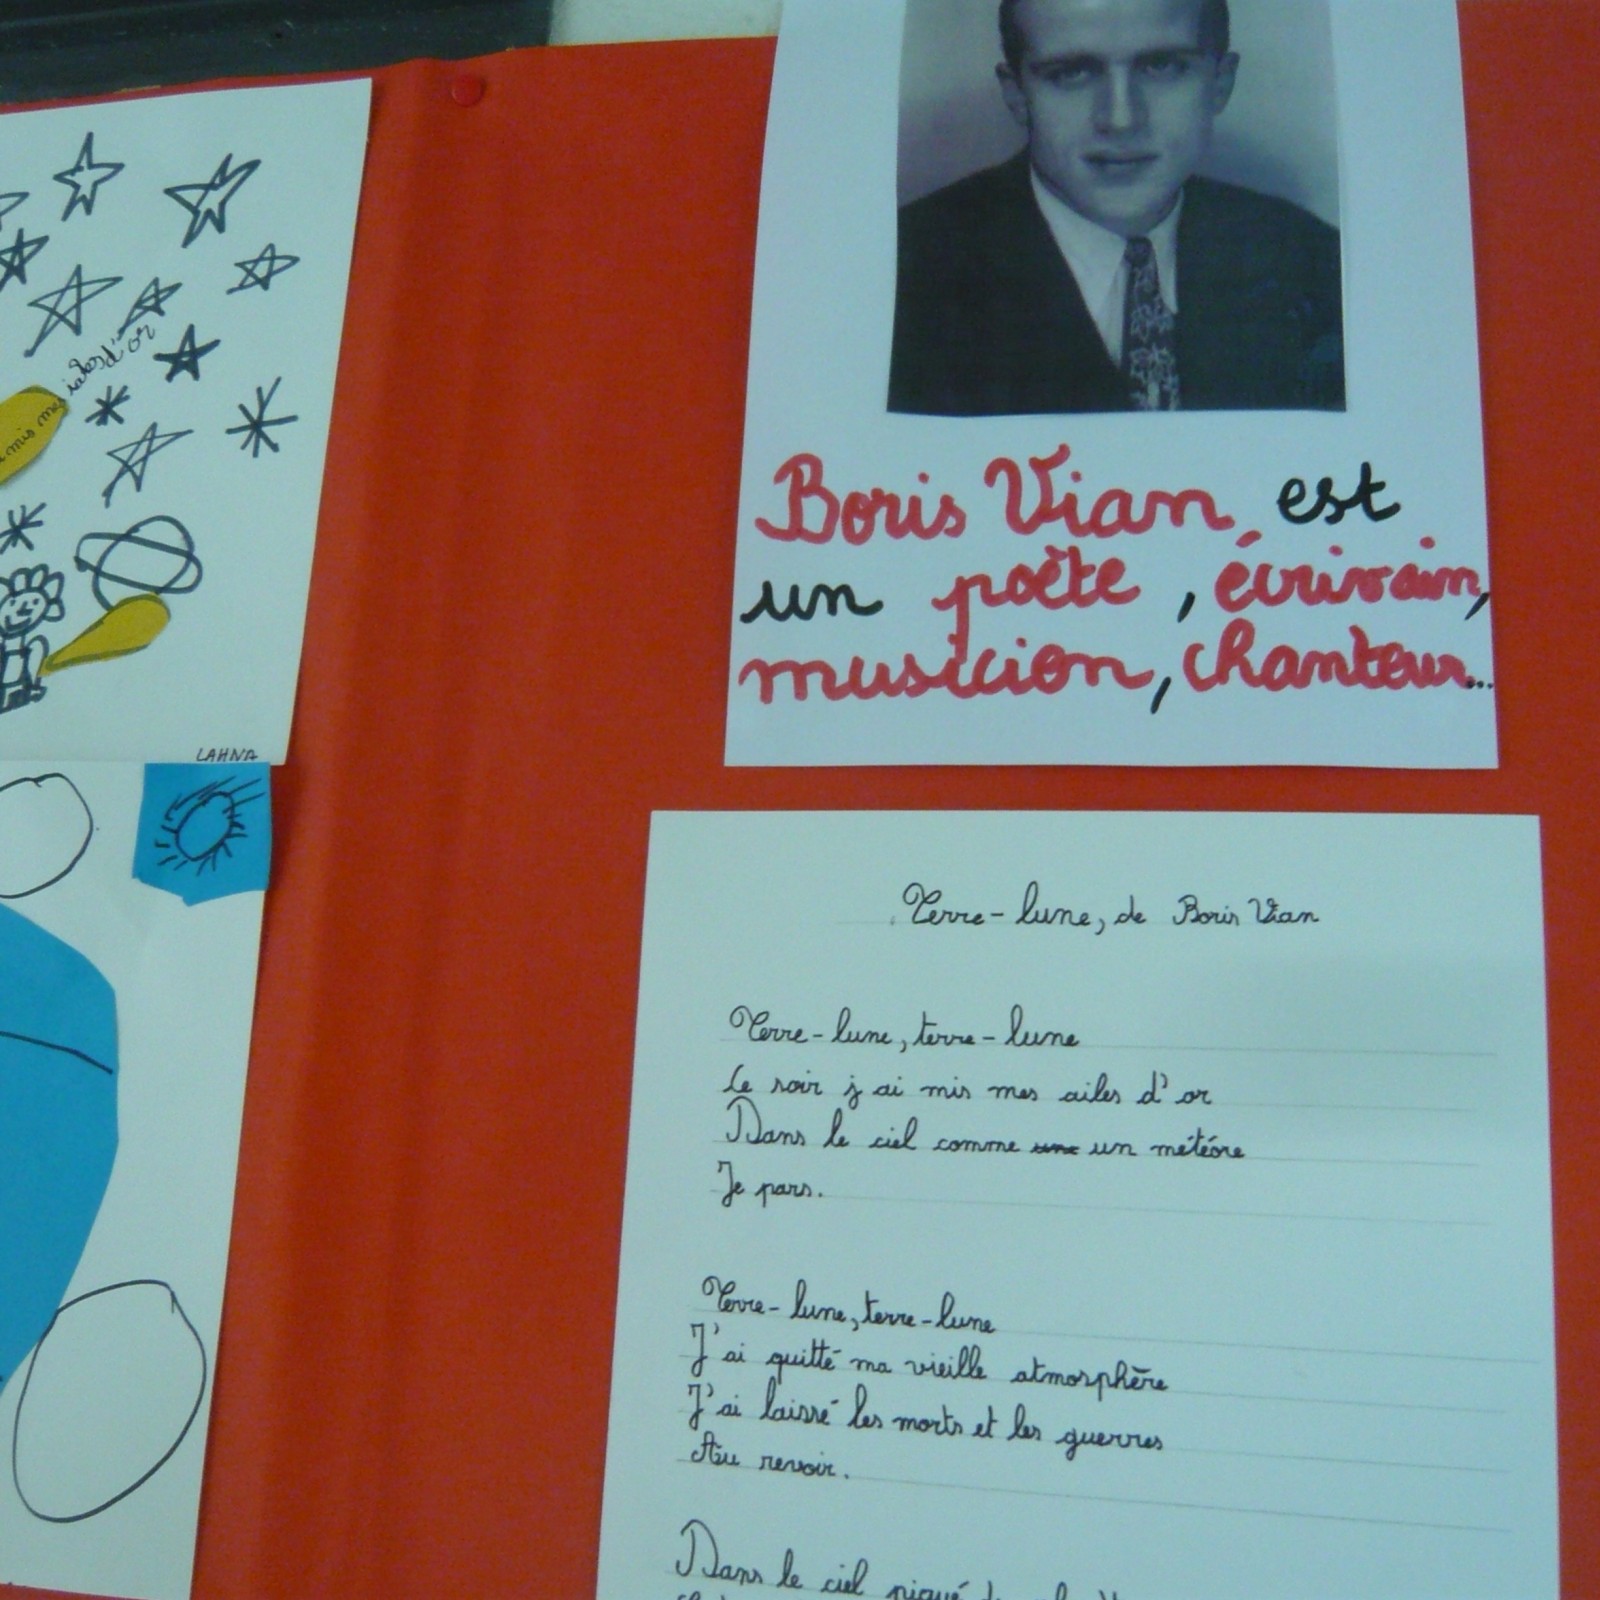 mis mes ailes d'or
LAHNA
Boris Vian est
un poète, écrivain,
musicion, chanteur...
Terre-lune, de Boris Vian
Terre-lune, terre-lune
Ce soir j'ai mis mes ailes d'or
Dans le ciel comme un météore
Je pars.
Terre-lune, terre-lune
J'ai quitté ma vieille atmosphère
J'ai laissé les morts et les guerres
Au revoir.
Dans le ciel piqué de